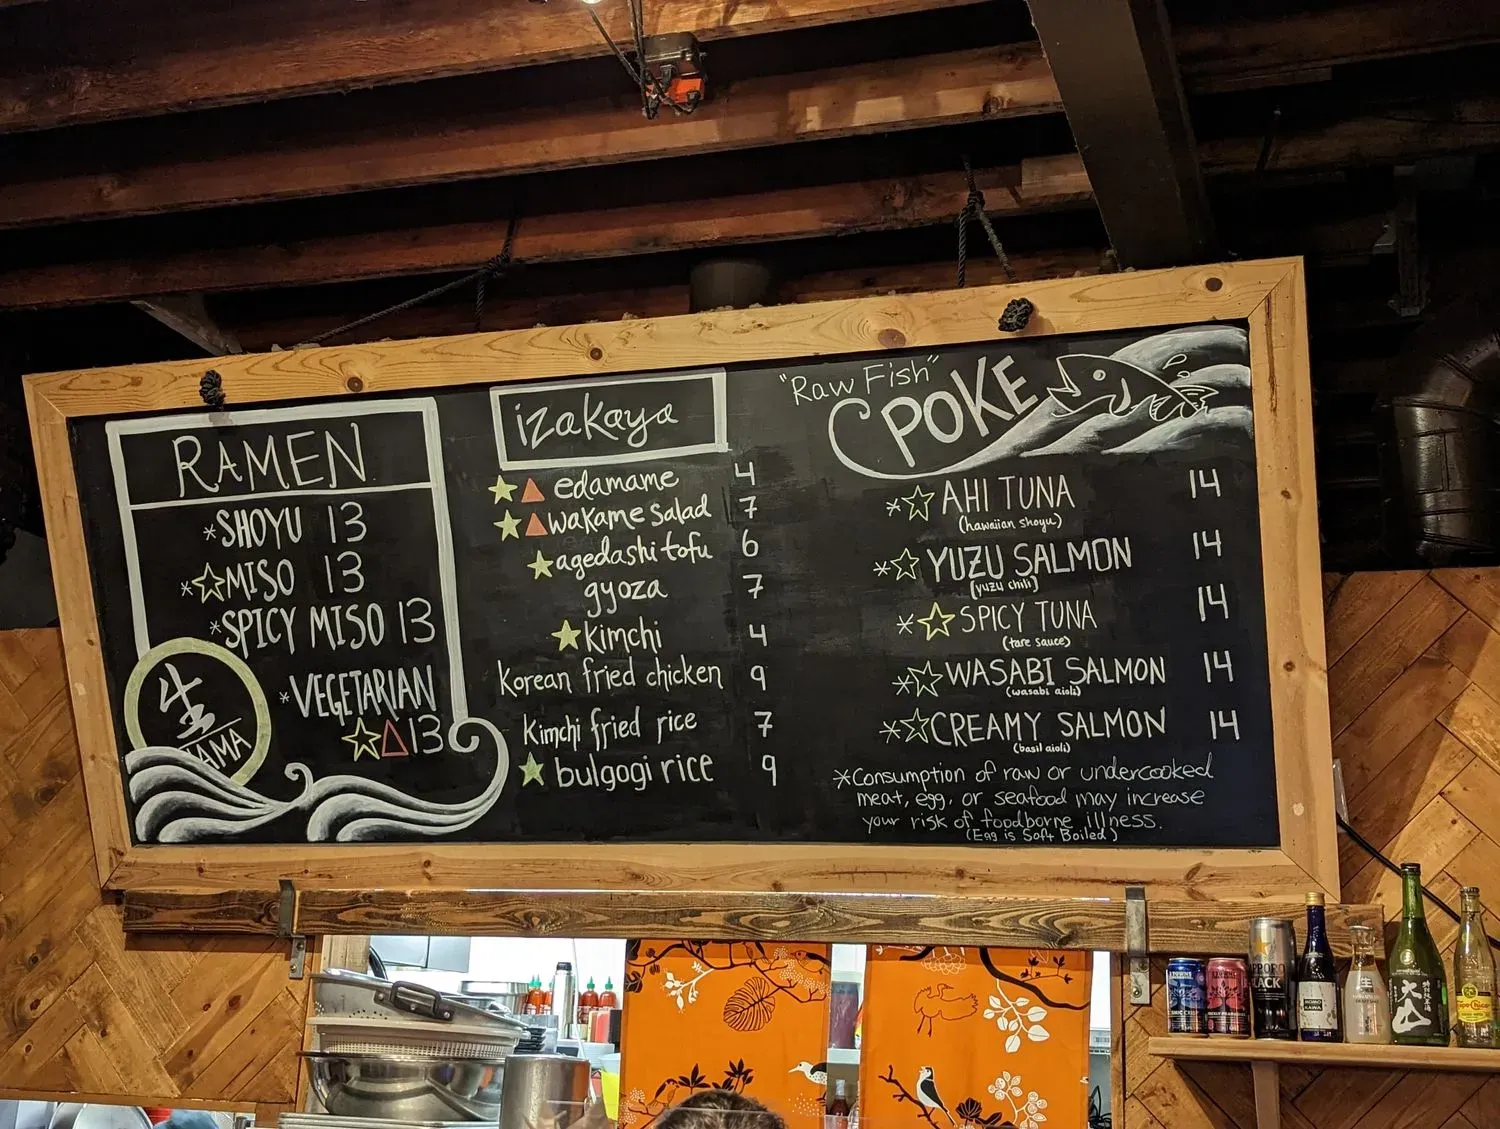 RAMEN
*SHOYU 13
*☆MISO 13
*SPICY MISO 13
*VEGETARIAN
☆△13
生
TAMA
izakaya
★▲ edamame 4
★▲ wakame salad 7
★ agedashi tofu 6
gyoza 7
★ kimchi 4
Korean fried chicken 9
Kimchi fried rice 7
★ bulgogi rice 9
"Raw Fish"
POKE
*☆ AHI TUNA 14
(hawaiian shoyu)
*☆ YUZU SALMON 14
(yuzu chili)
*☆ SPICY TUNA 14
(tare sauce)
*☆ WASABI SALMON 14
(wasabi aioli)
*☆ CREAMY SALMON 14
(basil aioli)
*Consumption of raw or undercooked
meat, egg, or seafood may increase
your risk of foodborne illness.
(Egg is Soft Boiled)
SAPPORO
BLACK
MOMO
KAWA
生
大山
Topo Chico